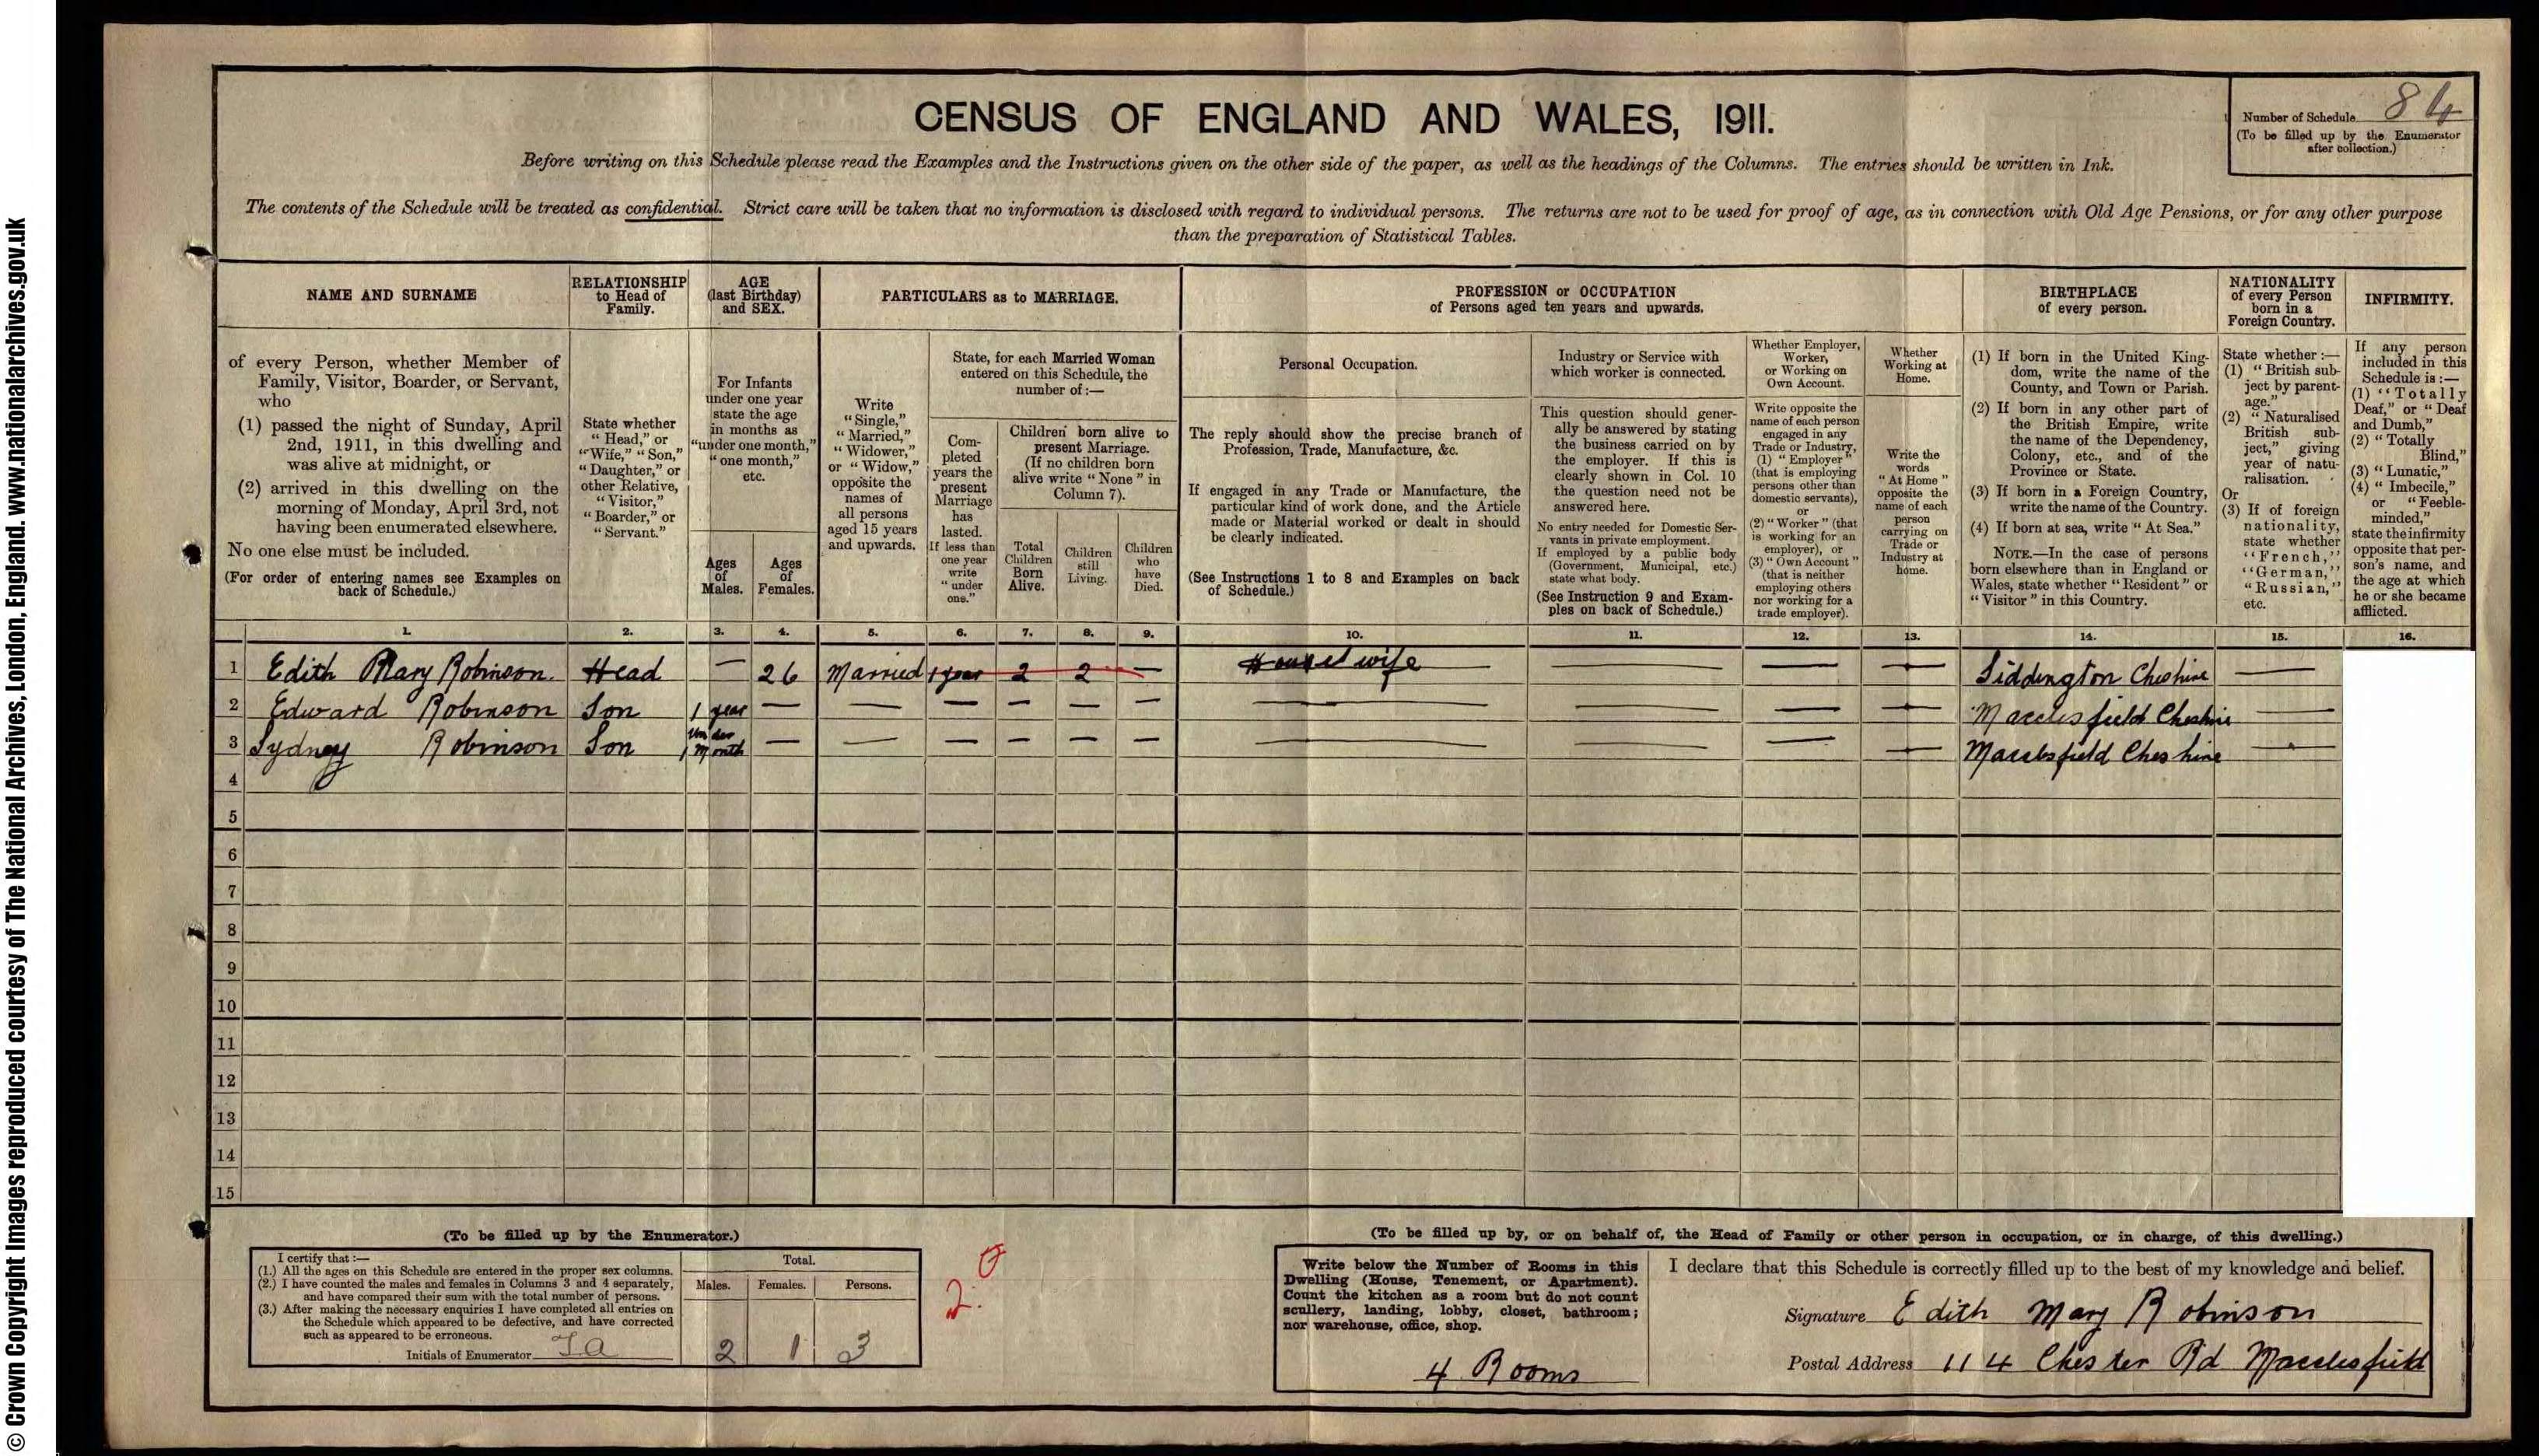 © Crown Copyright Images reproduced courtesy of The National Archives, London, England. www.nationalarchives.gov.uk
CENSUS OF ENGLAND AND WALES, 1911.
Number of Schedule 84
(To be filled up by the Enumerator
after collection.)
Before writing on this Schedule please read the Examples and the Instructions given on the other side of the paper, as well as the headings of the Columns. The entries should be written in Ink.
The contents of the Schedule will be treated as confidential. Strict care will be taken that no information is disclosed with regard to individual persons. The returns are not to be used for proof of age, as in connection with Old Age Pensions, or for any other purpose
than the preparation of Statistical Tables.
NAME AND SURNAME
of every Person, whether Member of
Family, Visitor, Boarder, or Servant,
who
(1) passed the night of Sunday, April
2nd, 1911, in this dwelling and
was alive at midnight, or
(2) arrived in this dwelling on the
morning of Monday, April 3rd, not
having been enumerated elsewhere.
No one else must be included.
(For order of entering names see Examples on
back of Schedule.)
RELATIONSHIP
to Head of
Family.
State whether
"Head," or
"Wife," "Son,"
"Daughter," or
other Relative,
"Visitor,"
"Boarder," or
"Servant."
AGE
(last Birthday)
and SEX.
For Infants
under one year
state the age
in months as
"under one month,"
"one month,"
etc.
Ages
of
Males.
Ages
of
Females.
PARTICULARS as to MARRIAGE.
Write
"Single,"
"Married,"
"Widower,"
or "Widow,"
opposite the
names of
all persons
aged 15 years
and upwards.
State, for each Married Woman
entered on this Schedule, the
number of:—
Com-
pleted
years the
present
Marriage
has
lasted.
If less than
one year
write
"under
one."
Children born alive to
present Marriage.
(If no children born
alive write "None" in
Column 7).
Total
Children
Born
Alive.
Children
still
Living.
Children
who
have
Died.
PROFESSION or OCCUPATION
of Persons aged ten years and upwards.
Personal Occupation.
The reply should show the precise branch of
Profession, Trade, Manufacture, &c.
If engaged in any Trade or Manufacture, the
particular kind of work done, and the Article
made or Material worked or dealt in should
be clearly indicated.
(See Instructions 1 to 8 and Examples on back
of Schedule.)
Industry or Service with
which worker is connected.
This question should gener-
ally be answered by stating
the business carried on by
the employer. If this is
clearly shown in Col. 10
the question need not be
answered here.
No entry needed for Domestic Ser-
vants in private employment.
If employed by a public body
(Government, Municipal, etc.)
state what body.
(See Instruction 9 and Exam-
ples on back of Schedule.)
Whether Employer,
Worker,
or Working on
Own Account.
Write opposite the
name of each person
engaged in any
Trade or Industry,
(1) "Employer"
(that is employing
persons other than
domestic servants),
or
(2) "Worker" (that
is working for an
employer), or
(3) "Own Account"
(that is neither
employing others
nor working for a
trade employer).
Whether
Working at
Home.
Write the
words
"At Home"
opposite the
name of each
person
carrying on
Trade or
Industry at
home.
BIRTHPLACE
of every person.
(1) If born in the United King-
dom, write the name of the
County, and Town or Parish.
(2) If born in any other part of
the British Empire, write
the name of the Dependency,
Colony, etc., and of the
Province or State.
(3) If born in a Foreign Country,
write the name of the Country.
(4) If born at sea, write "At Sea."
NOTE.—In the case of persons
born elsewhere than in England or
Wales, state whether "Resident" or
"Visitor" in this Country.
NATIONALITY
of every Person
born in a
Foreign Country.
State whether:—
(1) "British sub-
ject by parent-
age."
(2) "Naturalised
British sub-
ject," giving
year of natu-
ralisation.
Or
(3) If of foreign
nationality,
state whether
"French,"
"German,"
"Russian,"
etc.
INFIRMITY.
If any person
included in this
Schedule is:—
(1) "Totally
Deaf," or "Deaf
and Dumb,"
(2) "Totally
Blind,"
(3) "Lunatic,"
(4) "Imbecile,"
or "Feeble-
minded,"
state the infirmity
opposite that per-
son's name, and
the age at which
he or she became
afflicted.
1. 2. 3. 4. 5. 6. 7. 8. 9. 10. 11. 12. 13. 14. 15. 16.
1 Edith Mary Robinson. Head — 26 Married 1 year 2 2 — Housewife — — — Siddington Cheshire —
2 Edward Robinson Son 1 year — — — — — — — — — — Macclesfield Cheshire —
3 Sydney Robinson Son under 1 Month — — — — — — — — — — Macclesfield Cheshire —
4
5
6
7
8
9
10
11
12
13
14
15
(To be filled up by the Enumerator.)
I certify that:—
(1.) All the ages on this Schedule are entered in the proper sex columns.
(2.) I have counted the males and females in Columns 3 and 4 separately,
and have compared their sum with the total number of persons.
(3.) After making the necessary enquiries I have completed all entries on
the Schedule which appeared to be defective, and have corrected
such as appeared to be erroneous.
Initials of Enumerator
Total.
Males. Females. Persons.
2 1 3
2.
(To be filled up by, or on behalf of, the Head of Family or other person in occupation, or in charge, of this dwelling.)
Write below the Number of Rooms in this
Dwelling (House, Tenement, or Apartment).
Count the kitchen as a room but do not count
scullery, landing, lobby, closet, bathroom;
nor warehouse, office, shop.
4 Rooms
I declare that this Schedule is correctly filled up to the best of my knowledge and belief.
Signature Edith Mary Robinson
Postal Address 114 Chester Rd Macclesfield